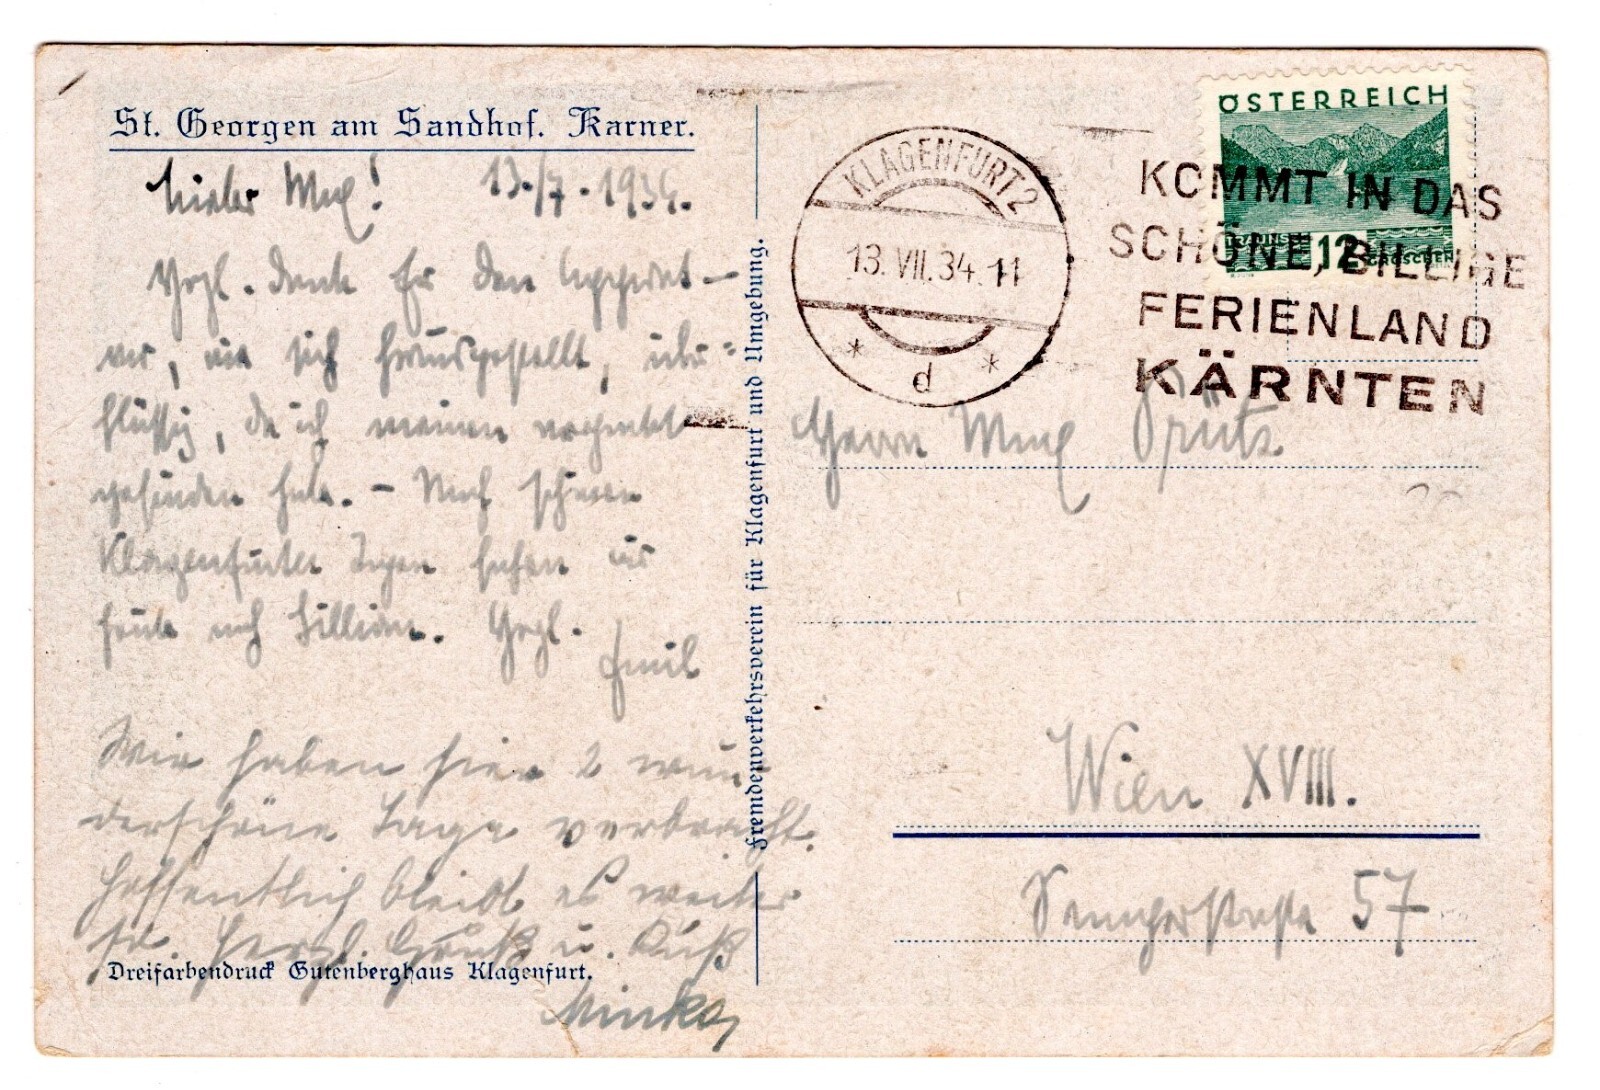 St. Georgen am Sandhof. Karner.
Lieber Max! 13./7. 1934.
Herzl. Dank für den Apparat –
war, wie sich herausgestellt, über=
flüssig, da ich meinen repariert
gefunden habe. – Nach schönen
Klagenfurter Tagen fahren wir
heute nach Sillian. Herzl.
Emil
Wir haben hier 2 wun-
derschöne Tage verbracht.
Hoffentlich bleibt es weiter
so. Herzl. Gruß u. Kuß
Minka
Dreifarbendruck Gutenberghaus Klagenfurt.
Fremdenverkehrsverein für Klagenfurt und Umgebung.
KLAGENFURT 2
13. VII. 34. 11
* d *
ÖSTERREICH
TRAUNSEE 12 GROSCHEN
KOMMT IN DAS
SCHÖNE, BILLIGE
FERIENLAND
KÄRNTEN
Herrn Max
Wien XVIII.
57